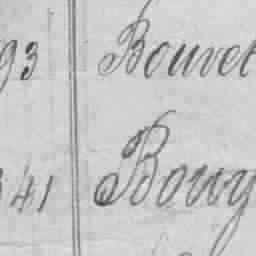 93 Bouvet
341 Bouy